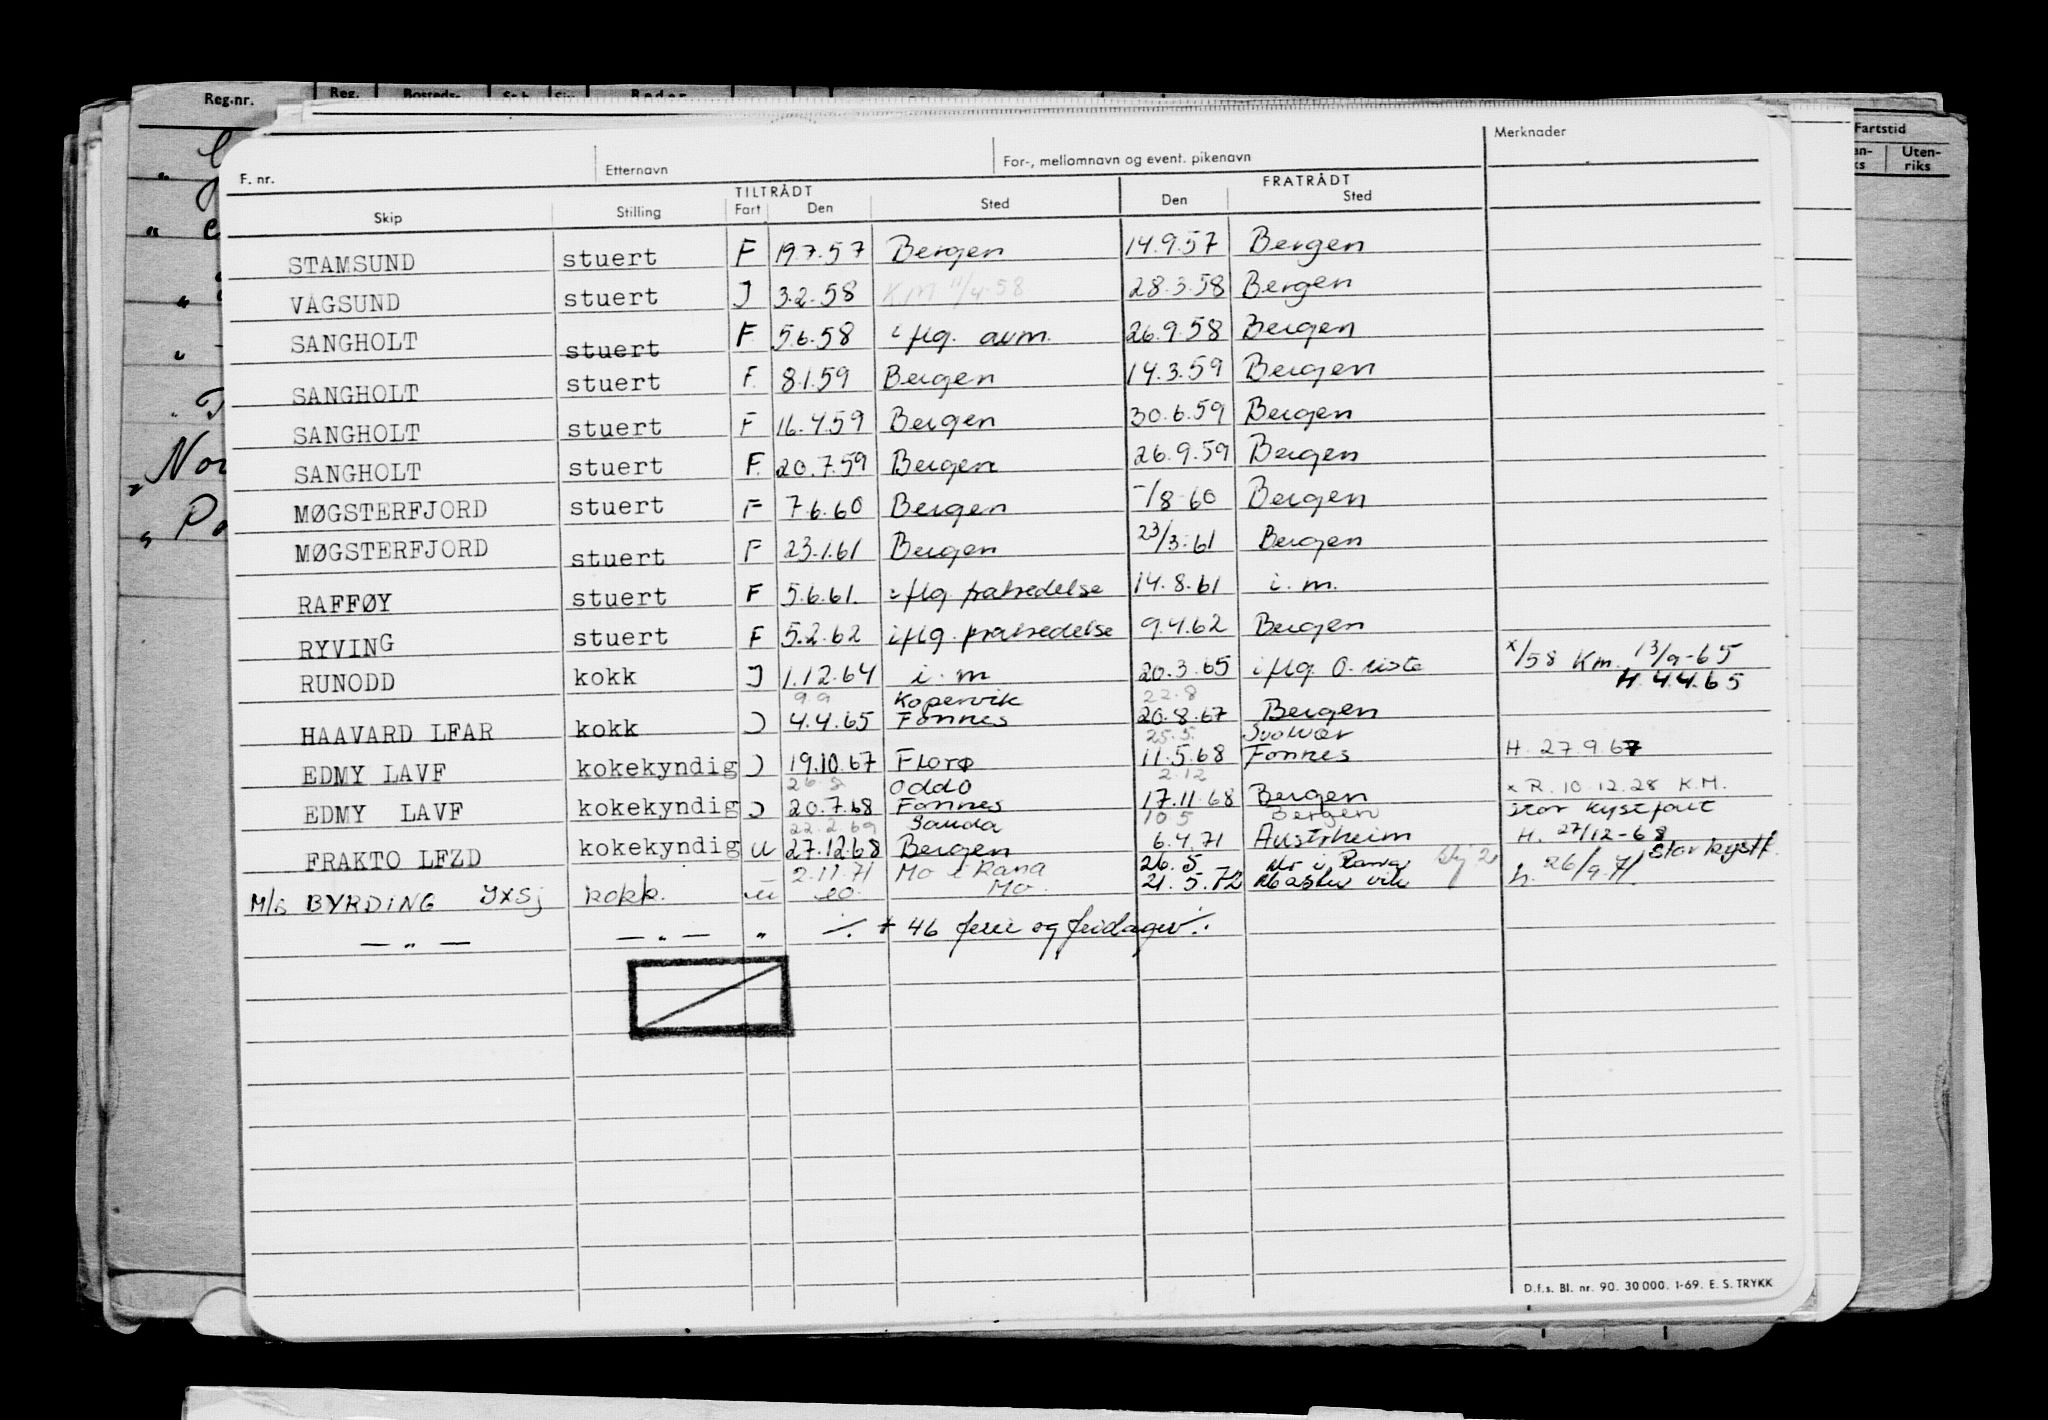 Reg.nr.
F. nr. Etternavn For-, mellomnavn og event. pikenavn Merknader
TILTRÅDT FRATRÅDT
Skip Stilling Fart Den Sted Den Sted
STAMSUND stuert F 19.7.57 Bergen 14.9.57 Bergen
VÅGSUND stuert J 3.2.58 K.M 11/4-58 28.3.58 Bergen
SANGHOLT stuert F 5.6.58 iflg. avm. 26.9.58 Bergen
SANGHOLT stuert F. 8.1.59 Bergen 14.3.59 Bergen
SANGHOLT stuert F 16.4.59 Bergen 30.6.59 Bergen
SANGHOLT stuert F. 20.7.59 Bergen 26.9.59 Bergen
MØGSTERFJORD stuert F 7.6.60 Bergen -/8-60 Bergen
MØGSTERFJORD stuert F 23.1.61 Bergen 23/3.61 Bergen
RAFFØY stuert F 5.6.61. iflg. fratredelse 14.8.61 i. m.
RYVING stuert F 5.2.62 iflg. fratredelse 9.4.62 Bergen
RUNODD kokk J 1.12.64 i. m 20.3.65 iflg. O. liste x/58 Km. 13/9-65
9.9 Kopervik 22.8 H. 4.4.65
HAAVARD LFAR kokk J 4.4.65 Fonnes 20.8.67 Bergen
25.5. Svolvær
EDMY LAVF kokekyndig J 19.10.67 Florø 11.5.68 Fonnes H. 27.9.67
26.8 Odda 2.12
EDMY LAVF kokekyndig J 20.7.68 Fonnes 17.11.68 Bergen x R. 10.12.28 K.M.
22.2.69 Sauda 10.5 Bergen stor kystfart
FRAKTO LFZD kokekyndig U 27.12.68 Bergen 6.4.71 Austrheim H. 27/12-68 stor kystf.
2.11.71 Mo i Rana 26.5 Mo i Rana h. 26/9.71.
M/S BYRDING JXSJ kokk. Mo. 21.5.72
— " — — " — " ·/. + 46 ferie og fridager ·/.
D.f.s. Bl. nr. 90. 30 000. 1-69. E. S. TRYKK
Fartstid
Uten-
riks